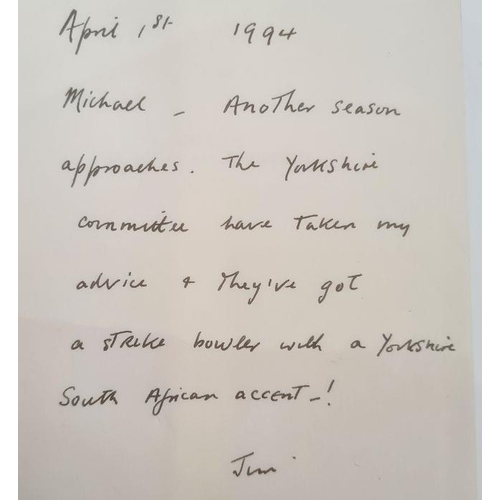 April 1st 1994
Michael - Another season
approaches. The Yorkshire
committee have taken my
advice + they've got
a strike bowler with a Yorkshire
South African accent-!
Jim